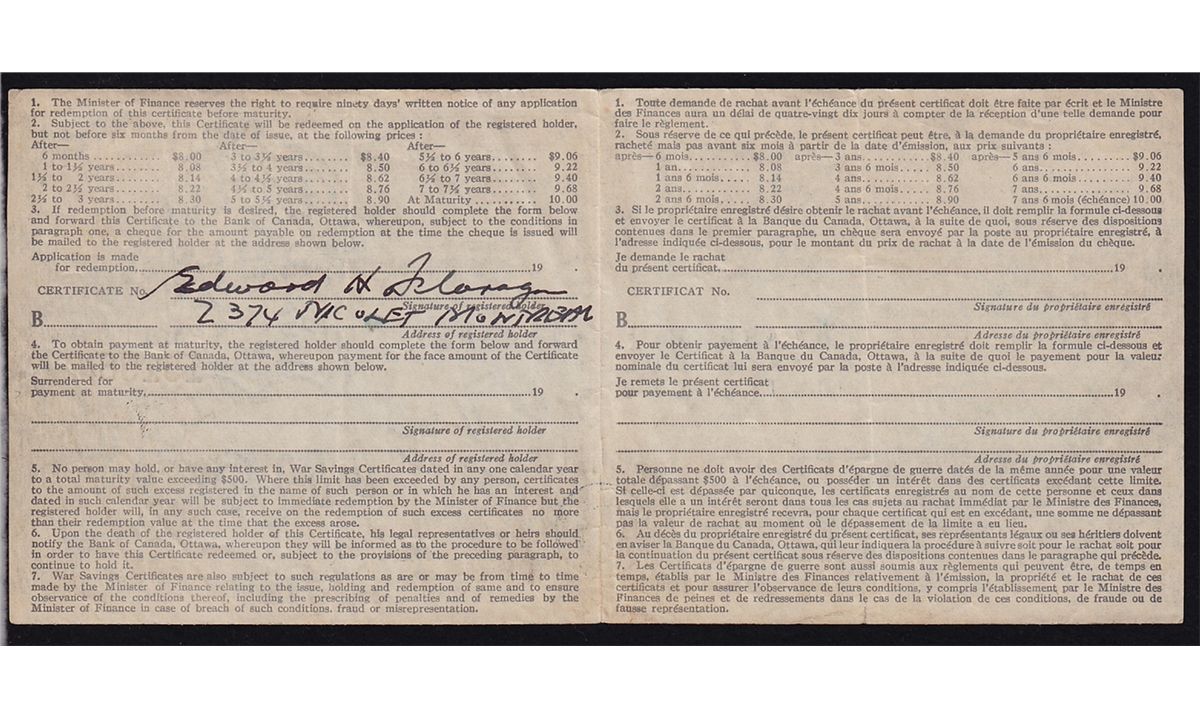 1. The Minister of Finance reserves the right to require ninety days' written notice of any application
for redemption of this certificate before maturity.
2. Subject to the above, this Certificate will be redeemed on the application of the registered holder,
but not before six months from the date of issue, at the following prices :
After— After— After—
6 months ............ $8.00 3 to 3½ years....... $8.40 5½ to 6 years........ $9.06
1 to 1½ years ...... 8.08 3½ to 4 years........ 8.50 6 to 6½ years........ 9.22
1½ to 2 years ...... 8.14 4 to 4½ years....... 8.62 6½ to 7 years........ 9.40
2 to 2½ years....... 8.22 4½ to 5 years........ 8.76 7 to 7½ years....... 9.68
2½ to 3 years....... 8.30 5 to 5½ years....... 8.90 At Maturity ........... 10.00
3. If redemption before maturity is desired, the registered holder should complete the form below
and forward this Certificate to the Bank of Canada, Ottawa, whereupon, subject to the conditions in
paragraph one, a cheque for the amount payable on redemption at the time the cheque is issued will
be mailed to the registered holder at the address shown below.
Application is made
for redemption, 19 .
CERTIFICATE No. Edward H
Signature of registered holder
B 2374 NICOLET MONTREAL
Address of registered holder
4. To obtain payment at maturity, the registered holder should complete the form below and forward
the Certificate to the Bank of Canada, Ottawa, whereupon payment for the face amount of the Certificate
will be mailed to the registered holder at the address shown below.
Surrendered for
payment at maturity, 19 .
Signature of registered holder
Address of registered holder
5. No person may hold, or have any interest in, War Savings Certificates dated in any one calendar year
to a total maturity value exceeding $500. Where this limit has been exceeded by any person, certificates
to the amount of such excess registered in the name of such person or in which he has an interest and
dated in such calendar year will be subject to immediate redemption by the Minister of Finance but the
registered holder will, in any such case, receive on the redemption of such excess certificates no more
than their redemption value at the time that the excess arose.
6. Upon the death of the registered holder of this Certificate, his legal representatives or heirs should
notify the Bank of Canada, Ottawa, whereupon they will be informed as to the procedure to be followed
in order to have this Certificate redeemed or, subject to the provisions of the preceding paragraph, to
continue to hold it.
7. War Savings Certificates are also subject to such regulations as are or may be from time to time
made by the Minister of Finance relating to the issue, holding and redemption of same and to ensure
observance of the conditions thereof, including the prescribing of penalties and of remedies by the
Minister of Finance in case of breach of such conditions, fraud or misrepresentation.
1. Toute demande de rachat avant l'échéance du présent certificat doit être faite par écrit et le Ministre
des Finances aura un délai de quatre-vingt dix jours à compter de la réception d'une telle demande pour
faire le règlement.
2. Sous réserve de ce qui précède, le présent certificat peut être, à la demande du propriétaire enregistré,
racheté mais pas avant six mois à partir de la date d'émission, aux prix suivants :
après— 6 mois........... $8.00 après— 3 ans........... $8.40 après— 5 ans 6 mois........... $9.06
1 an............. 8.08 3 ans 6 mois...... 8.50 6 ans............. 9.22
1 ans 6 mois..... 8.14 4 ans............. 8.62 6 ans 6 mois........... 9.40
2 ans............ 8.22 4 ans 6 mois...... 8.76 7 ans............. 9.68
2 ans 6 mois..... 8.30 5 ans............. 8.90 7 ans 6 mois (échéance) 10.00
3. Si le propriétaire enregistré désire obtenir le rachat avant l'échéance, il doit remplir la formule ci-dessous
et envoyer le certificat à la Banque du Canada, Ottawa, à la suite de quoi, sous réserve des dispositions
contenues dans le premier paragraphe, un chèque sera envoyé par la poste au propriétaire enregistré, à
l'adresse indiquée ci-dessous, pour le montant du prix de rachat à la date de l'émission du chèque.
Je demande le rachat
du présent certificat. 19 .
CERTIFICAT No.
Signature du propriétaire enregistré
B
Adresse du propriétaire enregistré
4. Pour obtenir payement à l'échéance, le propriétaire enregistré doit remplir la formule ci-dessous et
envoyer le Certificat à la Banque du Canada, Ottawa, à la suite de quoi le payement pour la valeur
nominale du certificat lui sera envoyé par la poste à l'adresse indiquée ci-dessous.
Je remets le présent certificat
pour payement à l'échéance. 19 .
Signature du propriétaire enregistré
Adresse du propriétaire enregistré
5. Personne ne doit avoir des Certificats d'épargne de guerre datés de la même année pour une valeur
totale dépassant $500 à l'échéance, ou posséder un intérêt dans des certificats excédant cette limite.
Si celle-ci est dépassée par quiconque, les certificats enregistrés au nom de cette personne et ceux dans
lesquels elle a un intérêt seront dans tous les cas sujets au rachat immédiat par le Ministre des Finances,
mais le propriétaire enregistré recevra, pour chaque certificat qui est en excédant, une somme ne dépassant
pas la valeur de rachat au moment où le dépassement de la limite a eu lieu.
6. Au décès du propriétaire enregistré du présent certificat, ses représentants légaux ou ses héritiers doivent
en aviser la Banque du Canada, Ottawa, qui leur indiquera la procédure à suivre soit pour le rachat soit pour
la continuation du présent certificat sous réserve des dispositions contenues dans le paragraphe qui précède.
7. Les Certificats d'épargne de guerre sont aussi soumis aux règlements qui peuvent être, de temps en
temps, établis par le Ministre des Finances relativement à l'émission, la propriété et le rachat de ces
certificats et pour assurer l'observance de leurs conditions, y compris l'établissement par le Ministre des
Finances de peines et de redressements dans le cas de la violation de ces conditions, de fraude ou de
fausse représentation.